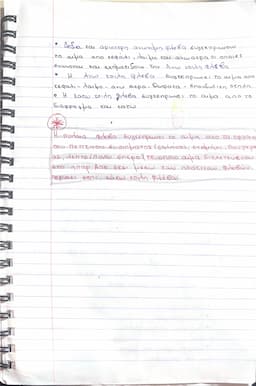 • Δεξιά και αριστερή ανώνυμη φλέβα συγκεντρώνουν
το αίμα από κεφάλι-λαιμό και άνω άκρα οι οποίες
ενώνονται και σχηματίζουν την Άνω κοίλη φλέβα
• Η Άνω κοίλη φλέβα συγκεντρώνει το αίμα από
κεφάλι-λαιμό-άνω άκρα-θώρακα-
• Η κάτω κοίλη φλέβα συγκεντρώνει το αίμα από το
διάφραγμα και κάτω
Η πυλαία φλέβα συγκεντρώνει το αίμα από τα όργανα
του πεπτικού συστήματος (στομάχι,
λεπτό/παχύ έντερο) το οποίο αίμα διοχετεύεται
στο ήπαρ. Από εκεί μέσω των ηπατικών φλεβών
περνάει στην κάτω κοίλη φλέβα